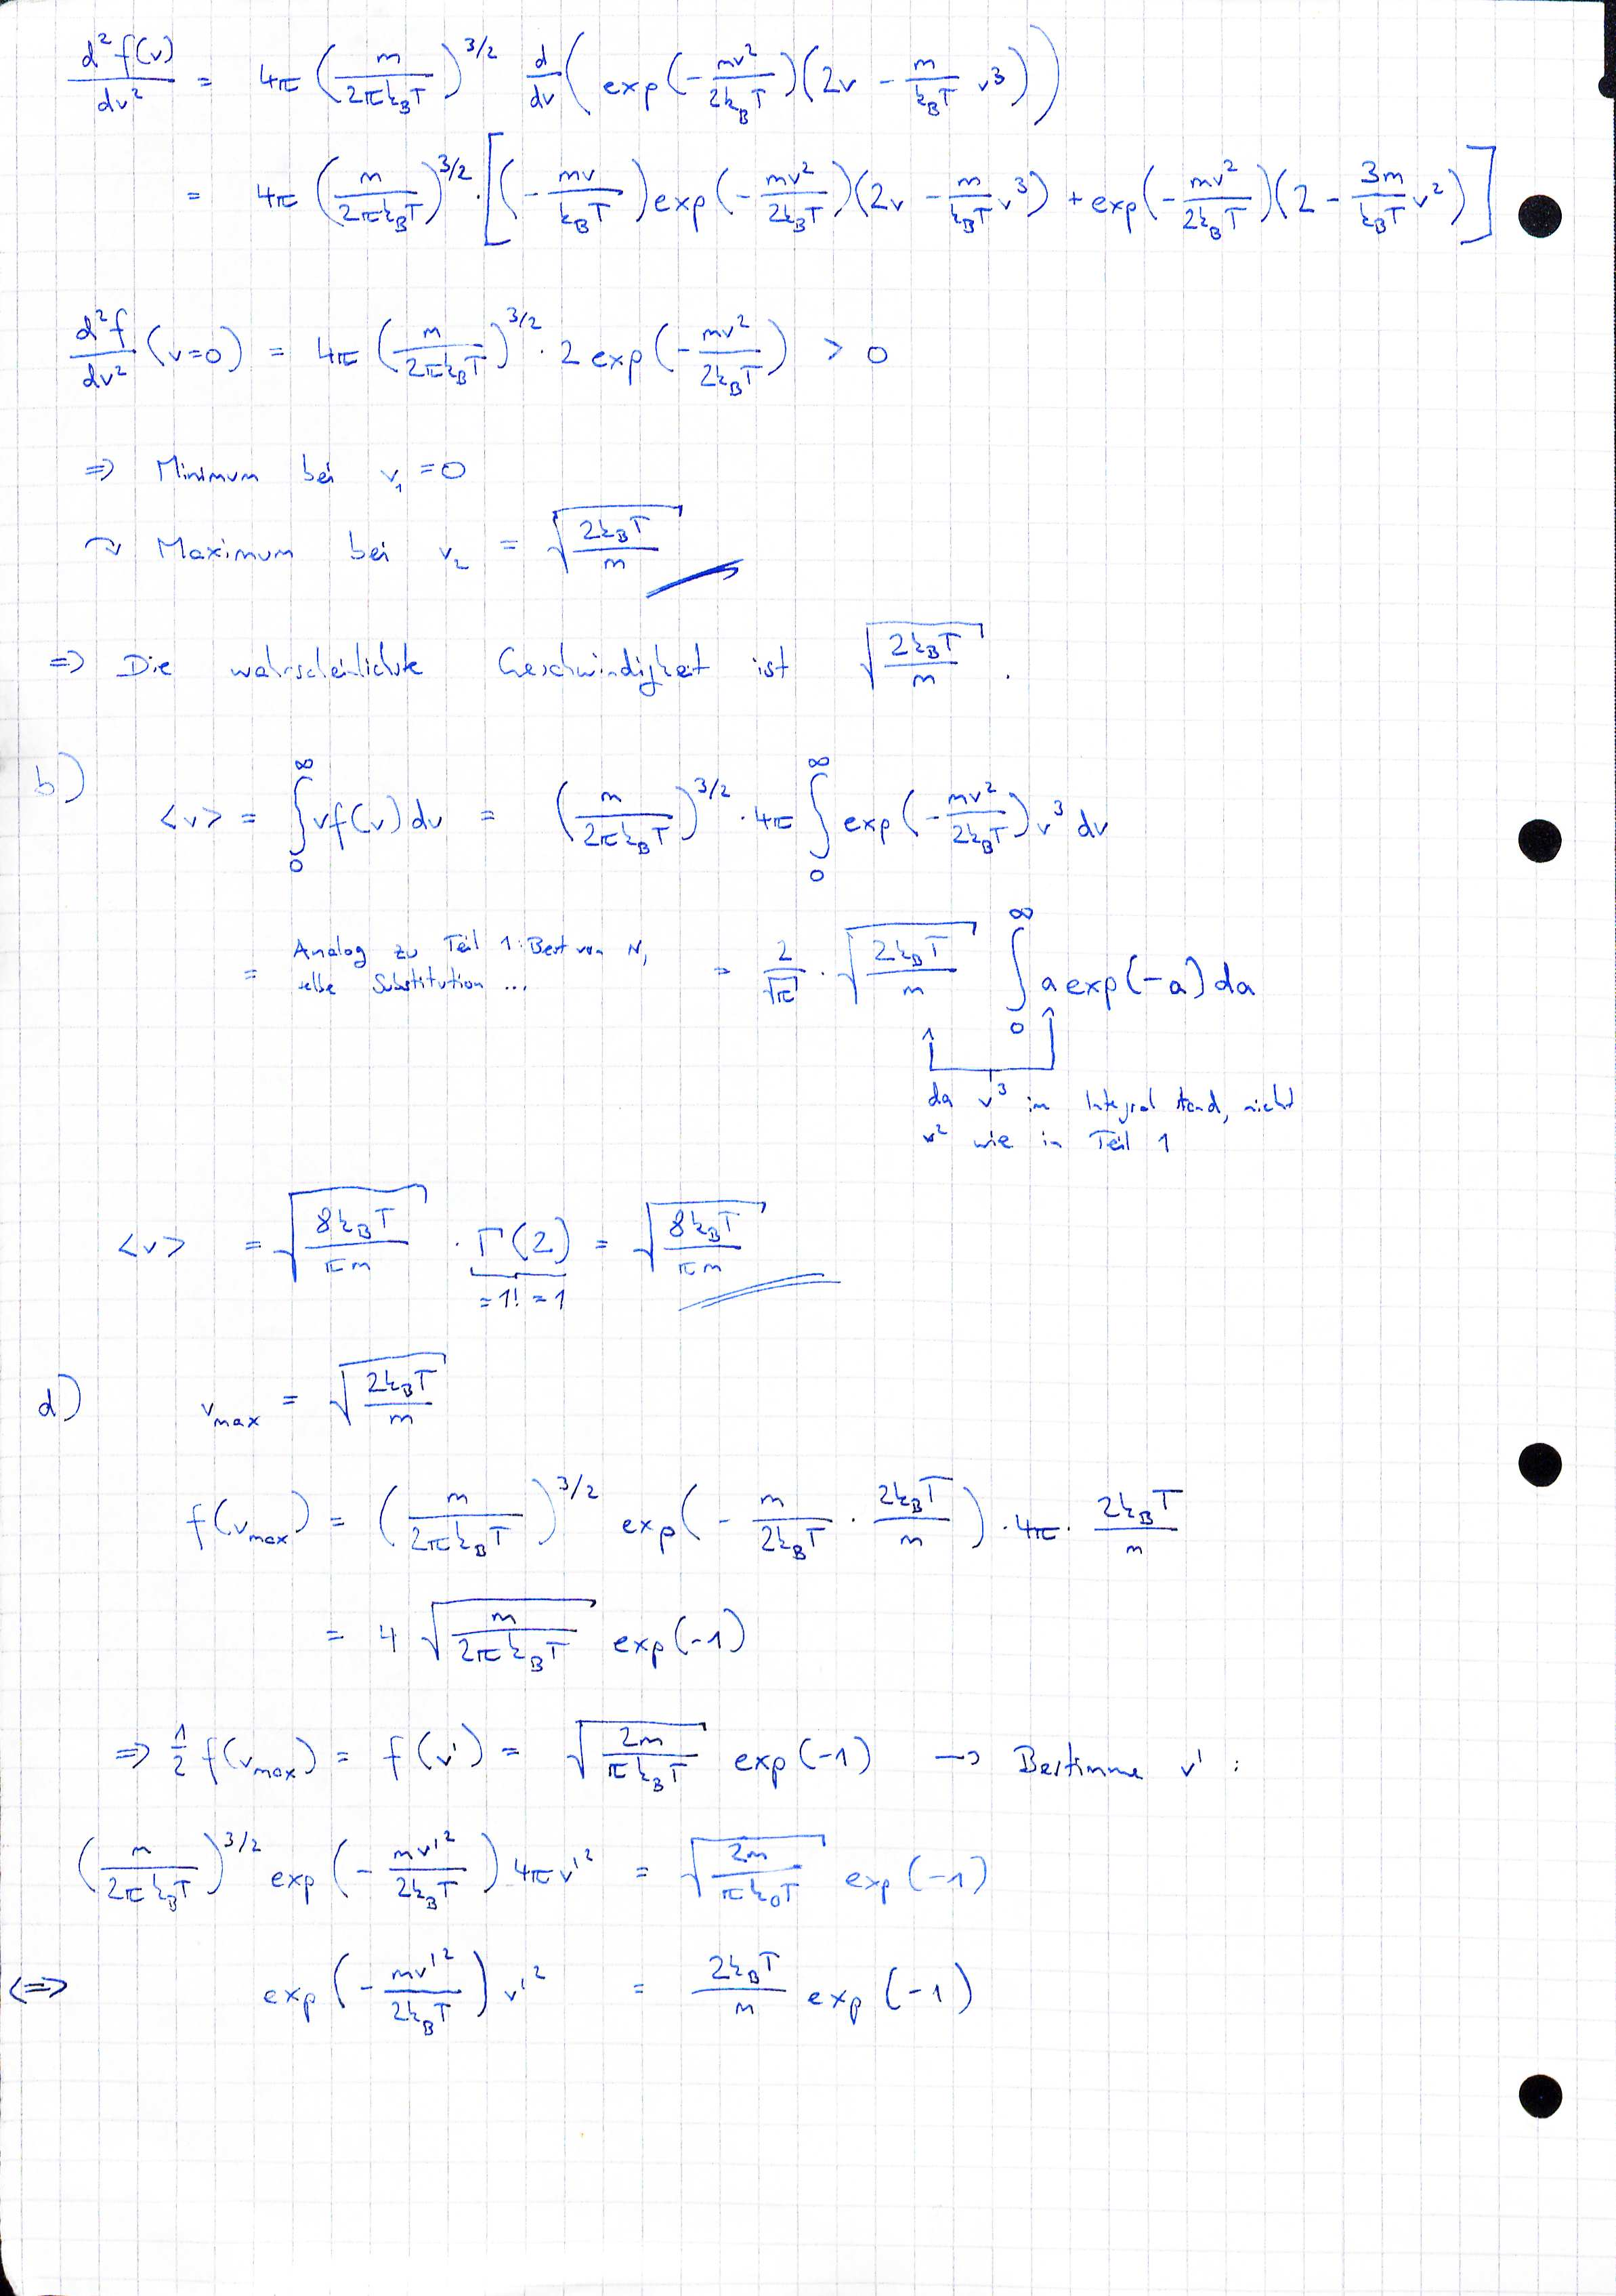 d²f(v)/dv² = 4π (m/(2πk_BT))^3/2 d/dv (exp(-mv²/(2k_BT))(2v - m/(k_BT) v³))
= 4π (m/(2πk_BT))^3/2 · [(-mv/(k_BT)) exp(-mv²/(2k_BT))(2v - m/(k_BT) v³) + exp(-mv²/(2k_BT))(2 - 3m/(k_BT) v²)]
d²f/dv² (v=0) = 4π (m/(2πk_BT))^3/2 · 2 exp(-mv²/(2k_BT)) > 0
⇒ Minimum bei v₁ = 0
↷ Maximum bei v₂ = √(2k_BT/m)
⇒ Die wahrscheinlichste Geschwindigkeit ist √(2k_BT/m).
b)
<v> = ∫₀^∞ vf(v)dv = (m/(2πk_BT))^3/2 · 4π ∫₀^∞ exp(-mv²/(2k_BT)) v³ dv
= Analog zu Teil 1: Best von N,
selbe Substitution ...
= 2/√π · √(2k_BT/m) ∫₀^∞ a exp(-a) da
da v³ im Integral stand, nicht
v² wie in Teil 1
<v> = √(8k_BT/(πm)) · Γ(2) = √(8k_BT/(πm))
=1! =1
d) v_max = √(2k_BT/m)
f(v_max) = (m/(2πk_BT))^3/2 exp(-m/(2k_BT) · 2k_BT/m) · 4π · 2k_BT/m
= 4 √(m/(2πk_BT)) exp(-1)
⇒ 1/2 f(v_max) = f(v') = √(2m/(πk_BT)) exp(-1) → Bestimme v' :
(m/(2πk_BT))^3/2 exp(-mv'²/(2k_BT)) 4πv'² = √(2m/(πk_BT)) exp(-1)
<=> exp(-mv'²/(2k_BT)) v'² = 2k_BT/m exp(-1)